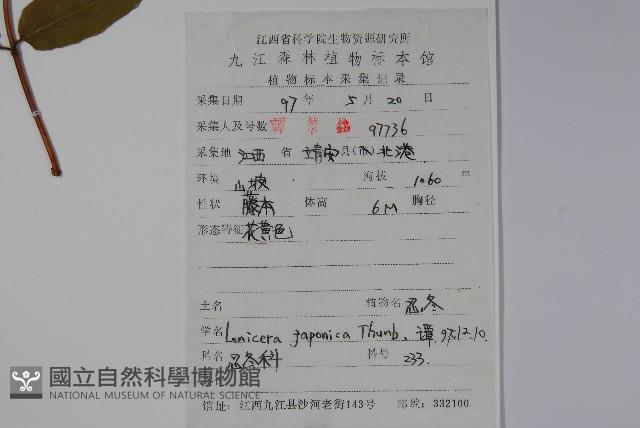 江西省科学院生物资源研究所
九江森林植物标本馆
植物标本采集记录
采集日期 97 年 5 月 20 日
采集人及号数 97736
采集地 江西 省 靖安 县(市) 北港
环境 山坡 海拔 1060 m
性状 藤本 体高 6M 胸径
形态特征 花黄色
土名 植物名 忍冬
学名 Lonicera japonica Thunb. 谭 97.12.10.
科名 忍冬科 科号 233
國立自然科學博物館
NATIONAL MUSEUM OF NATURAL SCIENCE
馆址:江西九江县沙河老街143号 邮编:332100